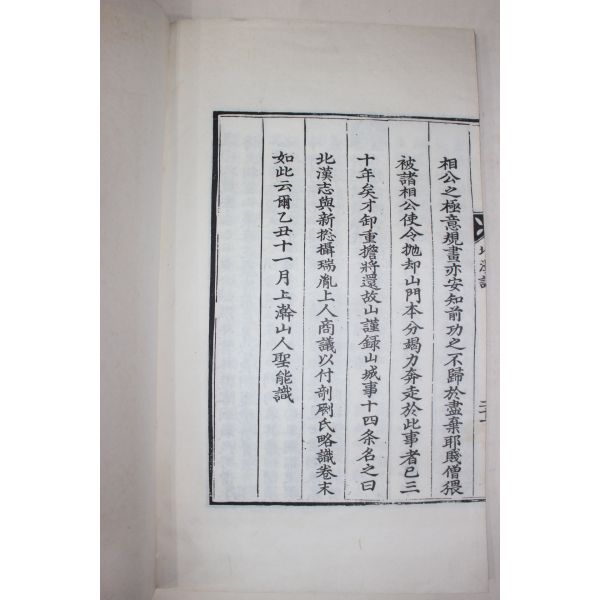 相公之極意規畫亦安知前功之不歸於盡棄耶賤僧猥
被諸相公使令抛却山門本分竭力奔走於此事者已三
十年矣才卸重擔將還故山謹錄山城事十四条名之曰
北漢志與新摠攝瑞胤上人商議以付剞劂氏略識卷末
如此云爾乙丑十一月上澣山人聖能識
北漢誌